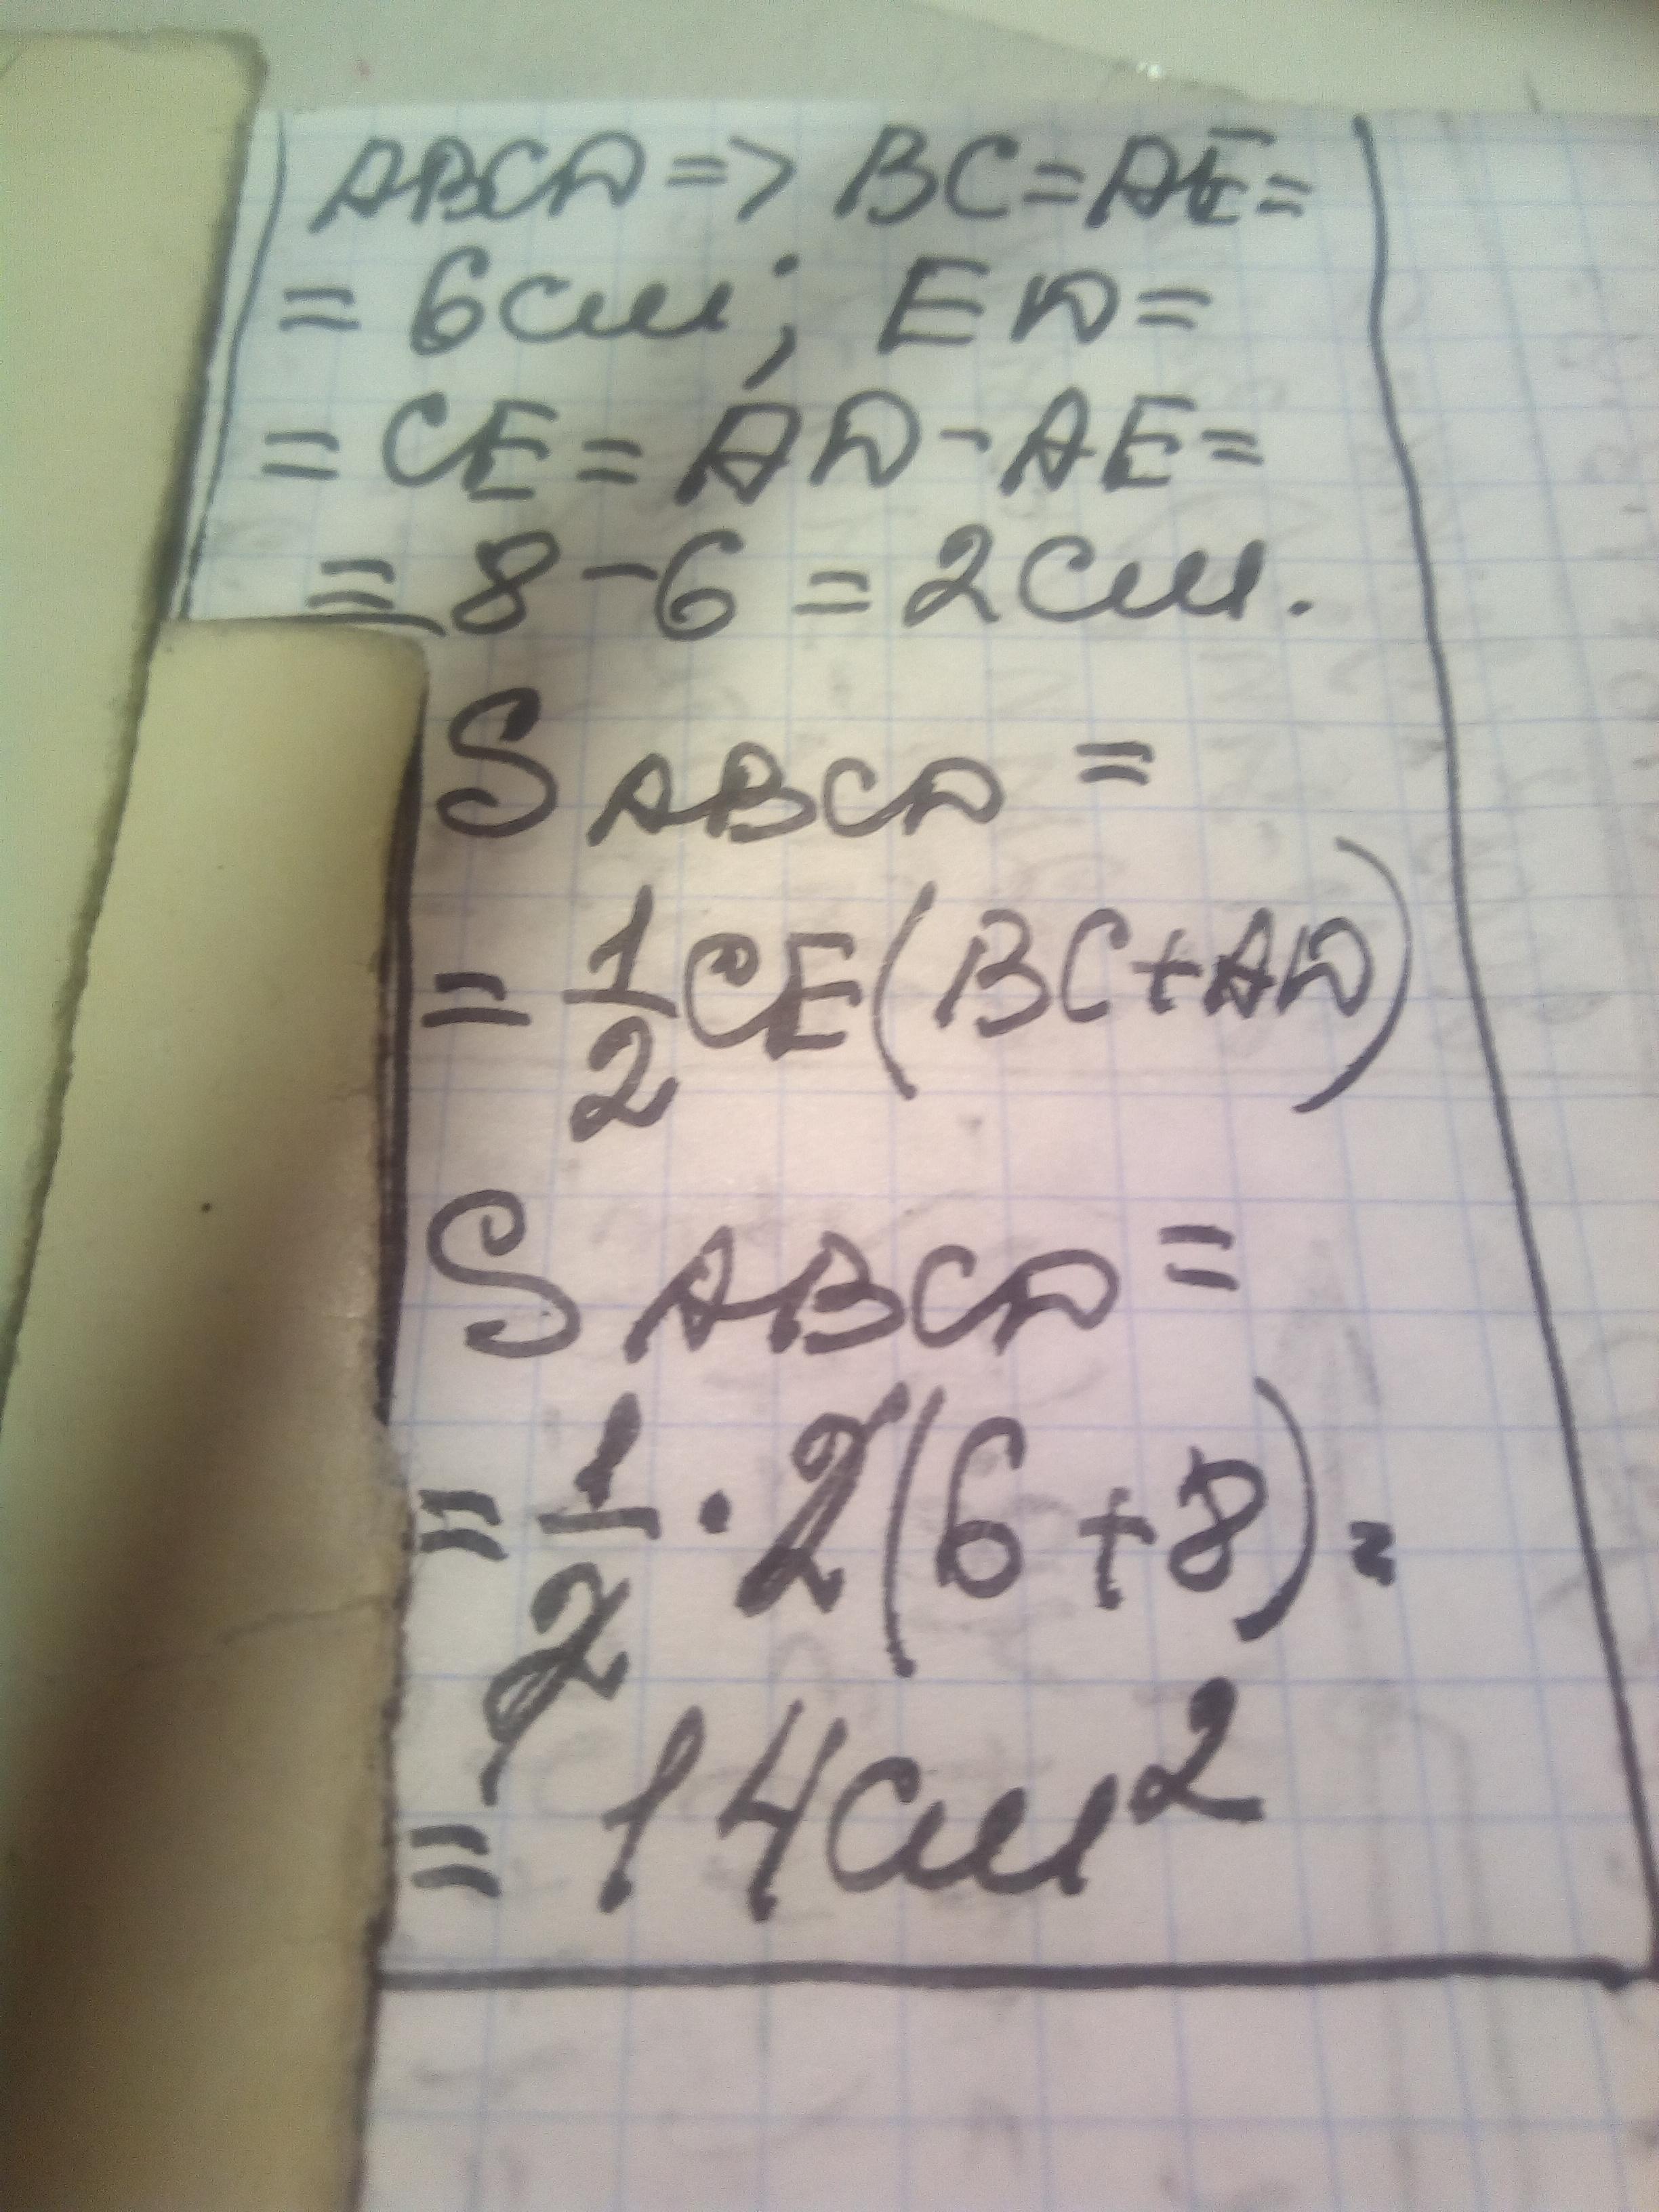 ABCD => BC = AE =
= 6 см; ED =
= CE = AD - AE =
= 8 - 6 = 2 см.
S ABCD =
= 1/2 CE (BC + AD)
S ABCD =
= 1/2 · 2 (6 + 8) =
= 14 см²